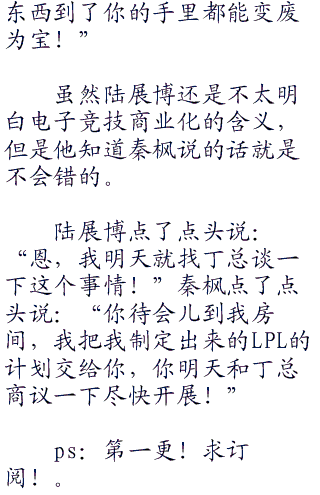 东西到了你的手里都能变废
为宝！”
虽然陆展博还是不太明
白电子竞技商业化的含义，
但是他知道秦枫说的话就是
不会错的。
陆展博点了点头说：
“恩，我明天就找丁总谈一
下这个事情！”秦枫点了点
头说：“你待会儿到我房
间，我把我制定出来的LPL的
计划交给你，你明天和丁总
商议一下尽快开展！”
ps：第一更！求订
阅！。